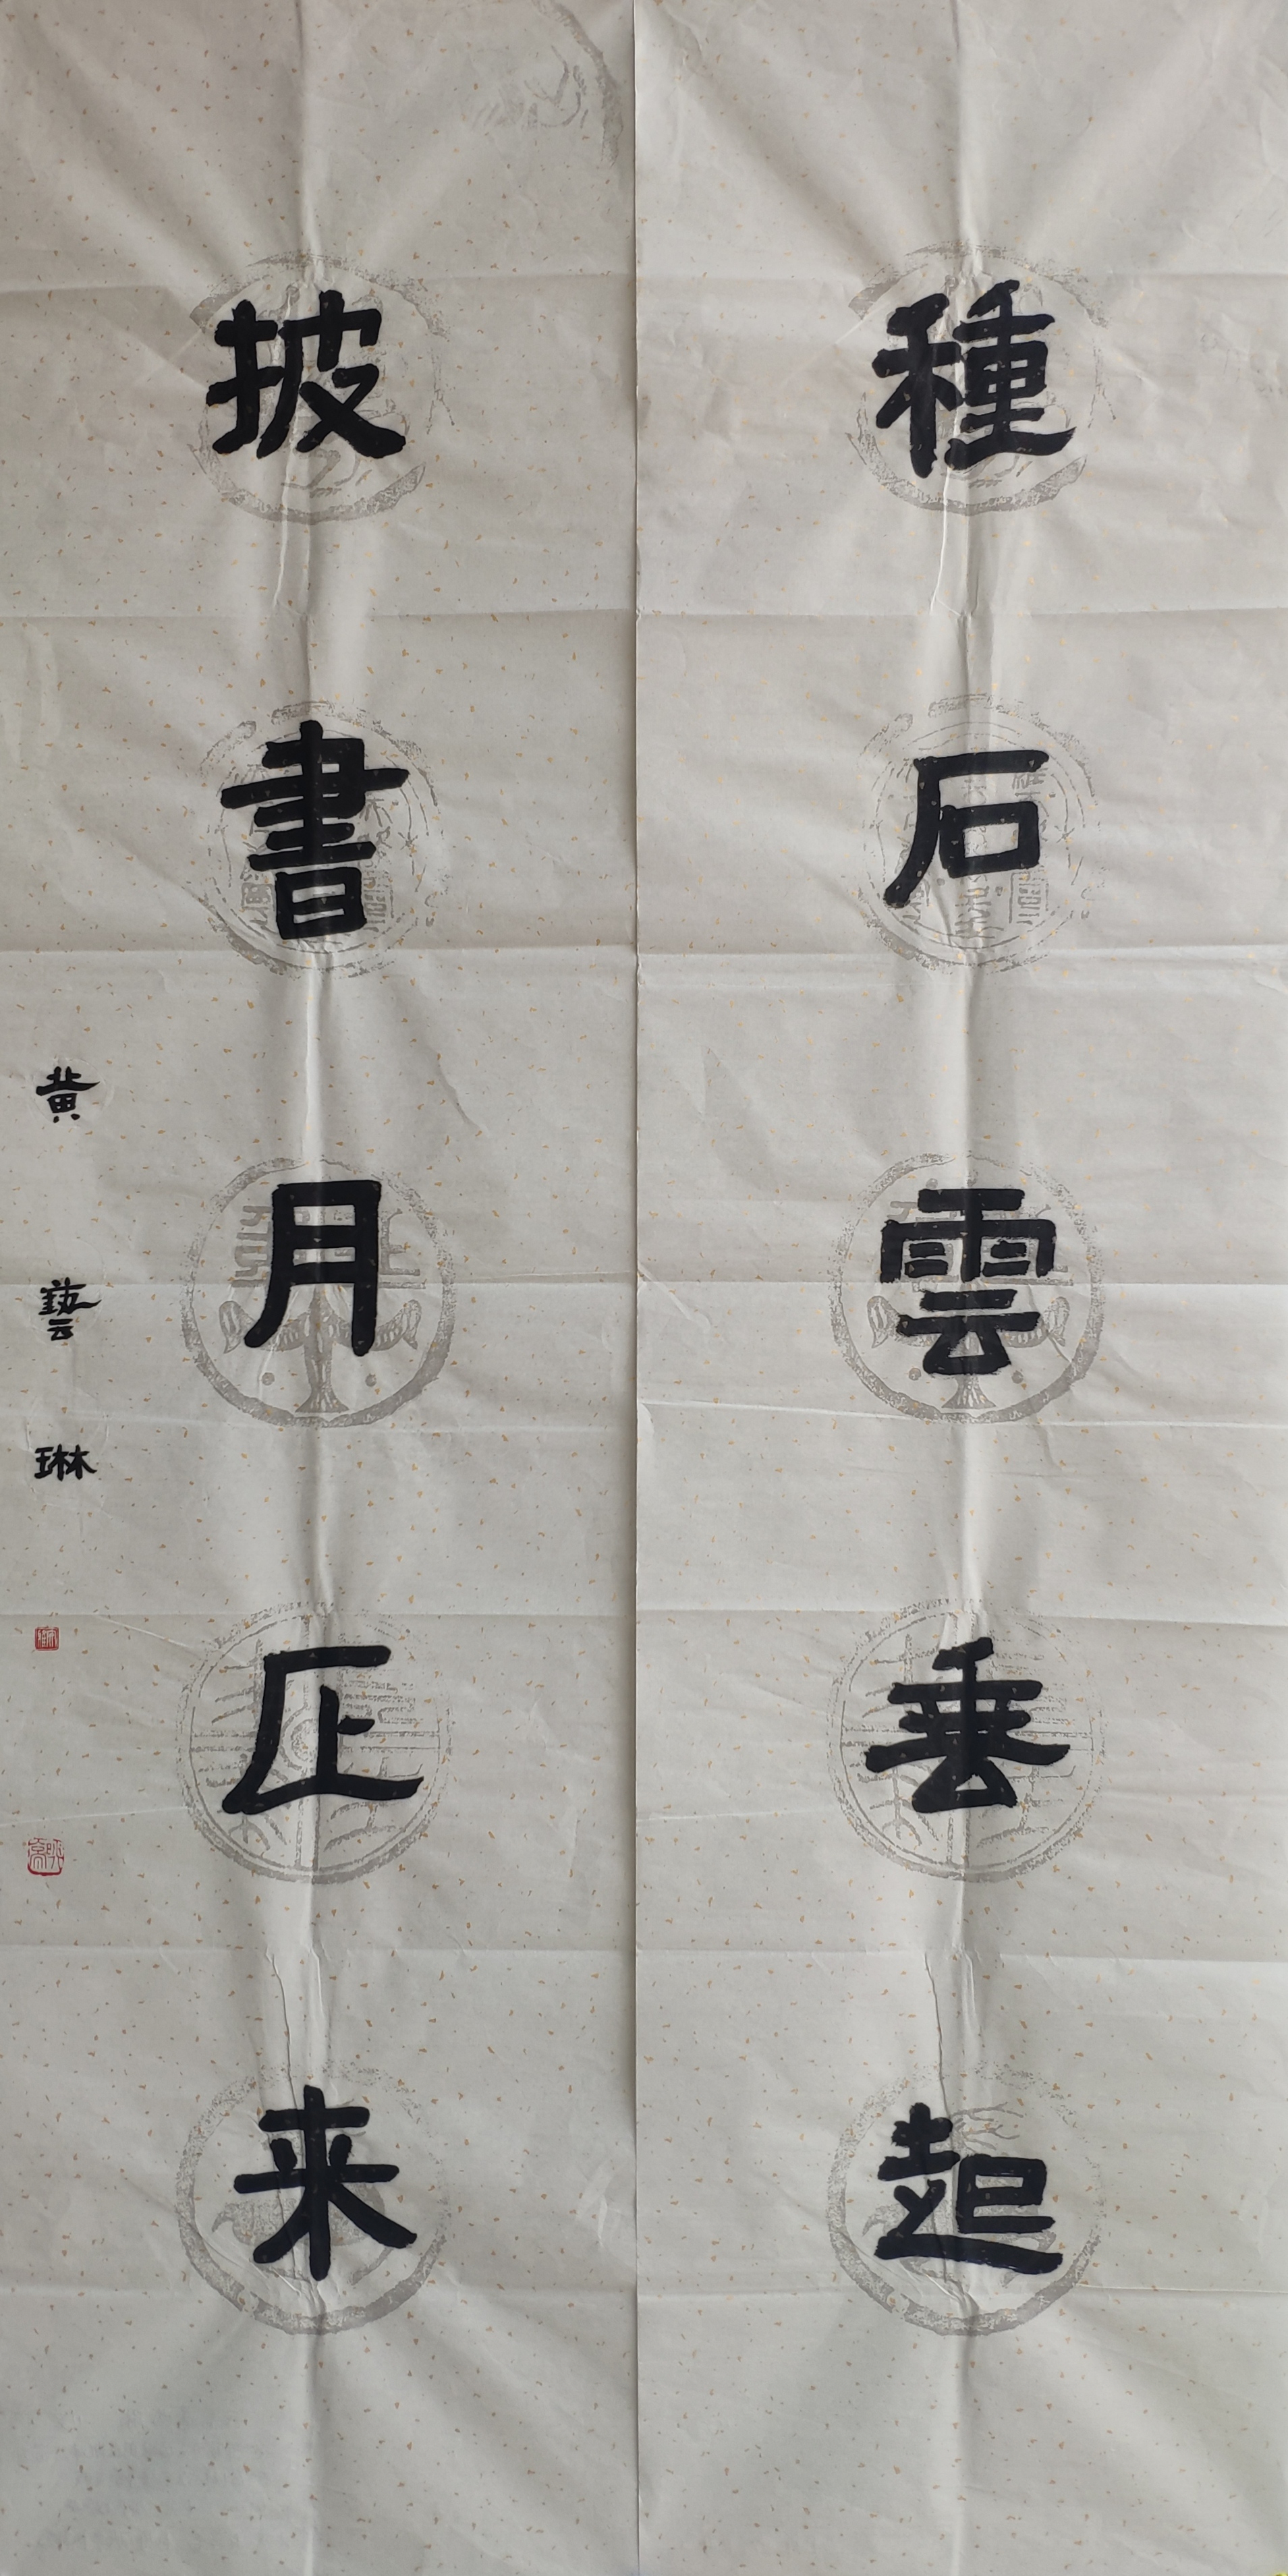 種石雲垂起
披書月正来
黄藝琳